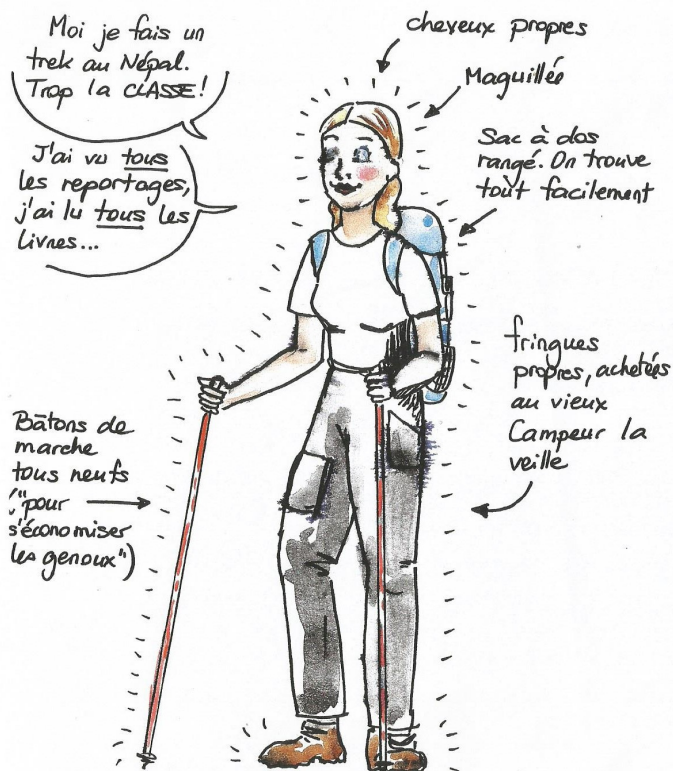 Moi je fais un
trek au Népal.
Trop la CLASSE!
J'ai vu tous
les reportages,
j'ai lu tous les
livres...
cheveux propres
Maquillée
Sac à dos
rangé. On trouve
tout facilement
fringues
propres, achetées
au vieux
Campeur la
veille
Bâtons de
marche
tous neufs
("pour
s'économiser
les genoux")